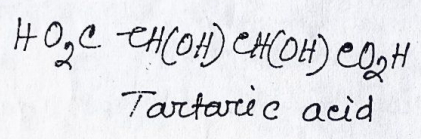 HO₂C CH(OH) CH(OH) CO₂H
Tartaric acid